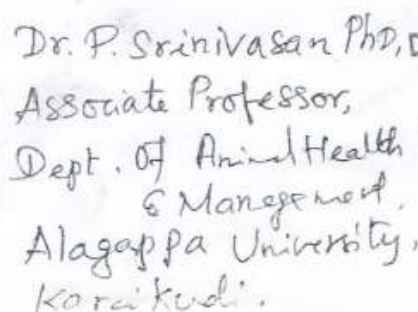 Dr. P. Srinivasan PhD,
Associate Professor,
Dept. Of Animal Health
& Management,
Alagappa University,
Karaikudi.